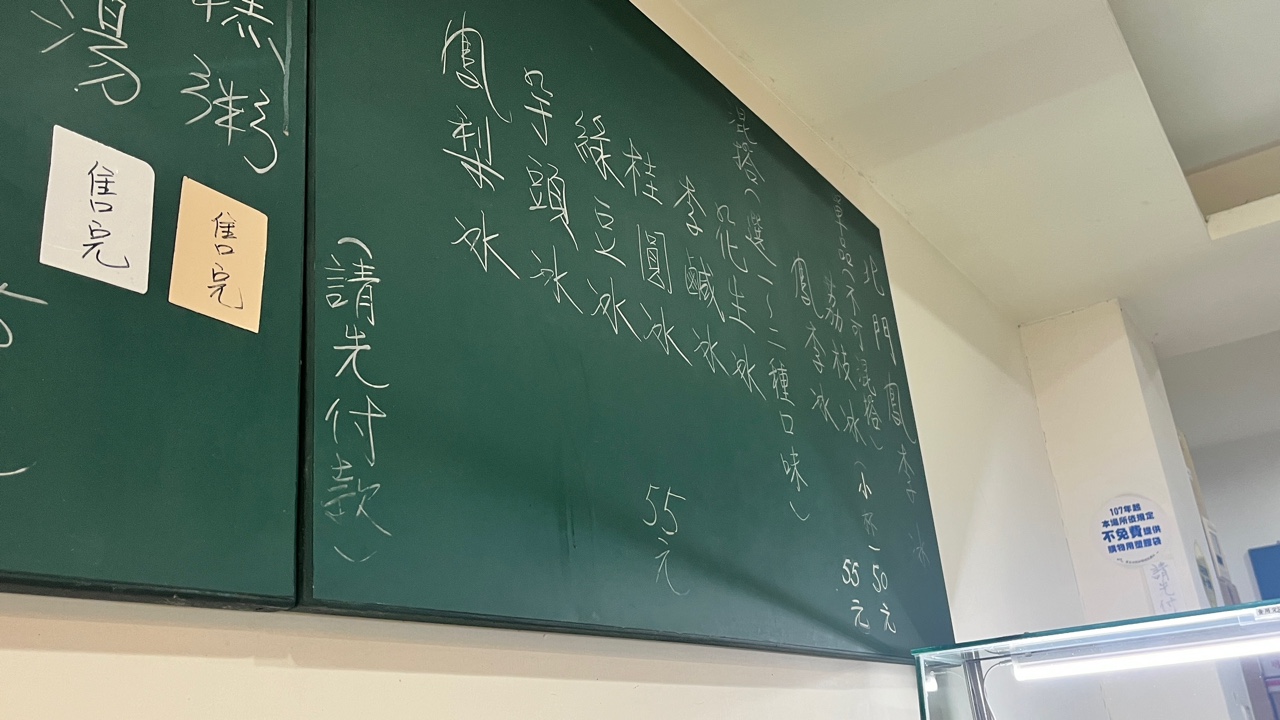 北門鳳李冰
單品(不可混搭)(小杯—50元
荔枝冰 55元
鳳李冰
混搭(選一~二種口味)
花生冰
李鹹冰
桂圓冰 55元
綠豆冰
芋頭冰
鳳梨冰
(請先付款)
粥
售完
湯
售完
107年起
本場所依規定
不免費提供
購物用塑膠袋
請先付